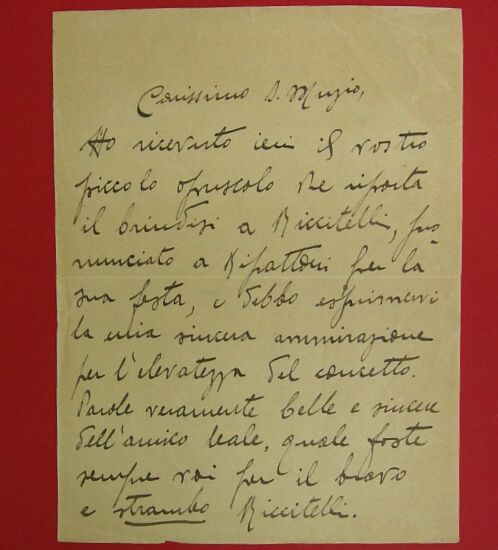 Carissimo D. Muzio,
Ho ricevuto ieri il vostro
piccolo opuscolo che riporta
il brindisi a Riccitelli, pro
nunciato a Ripattoni per la
sua festa, e debbo esprimervi
la mia sincera ammirazione
per l'elevatezza del concetto.
Parole veramente belle e sincere
dell'amico leale, quale foste
sempre voi per il bravo
e strambo Riccitelli.